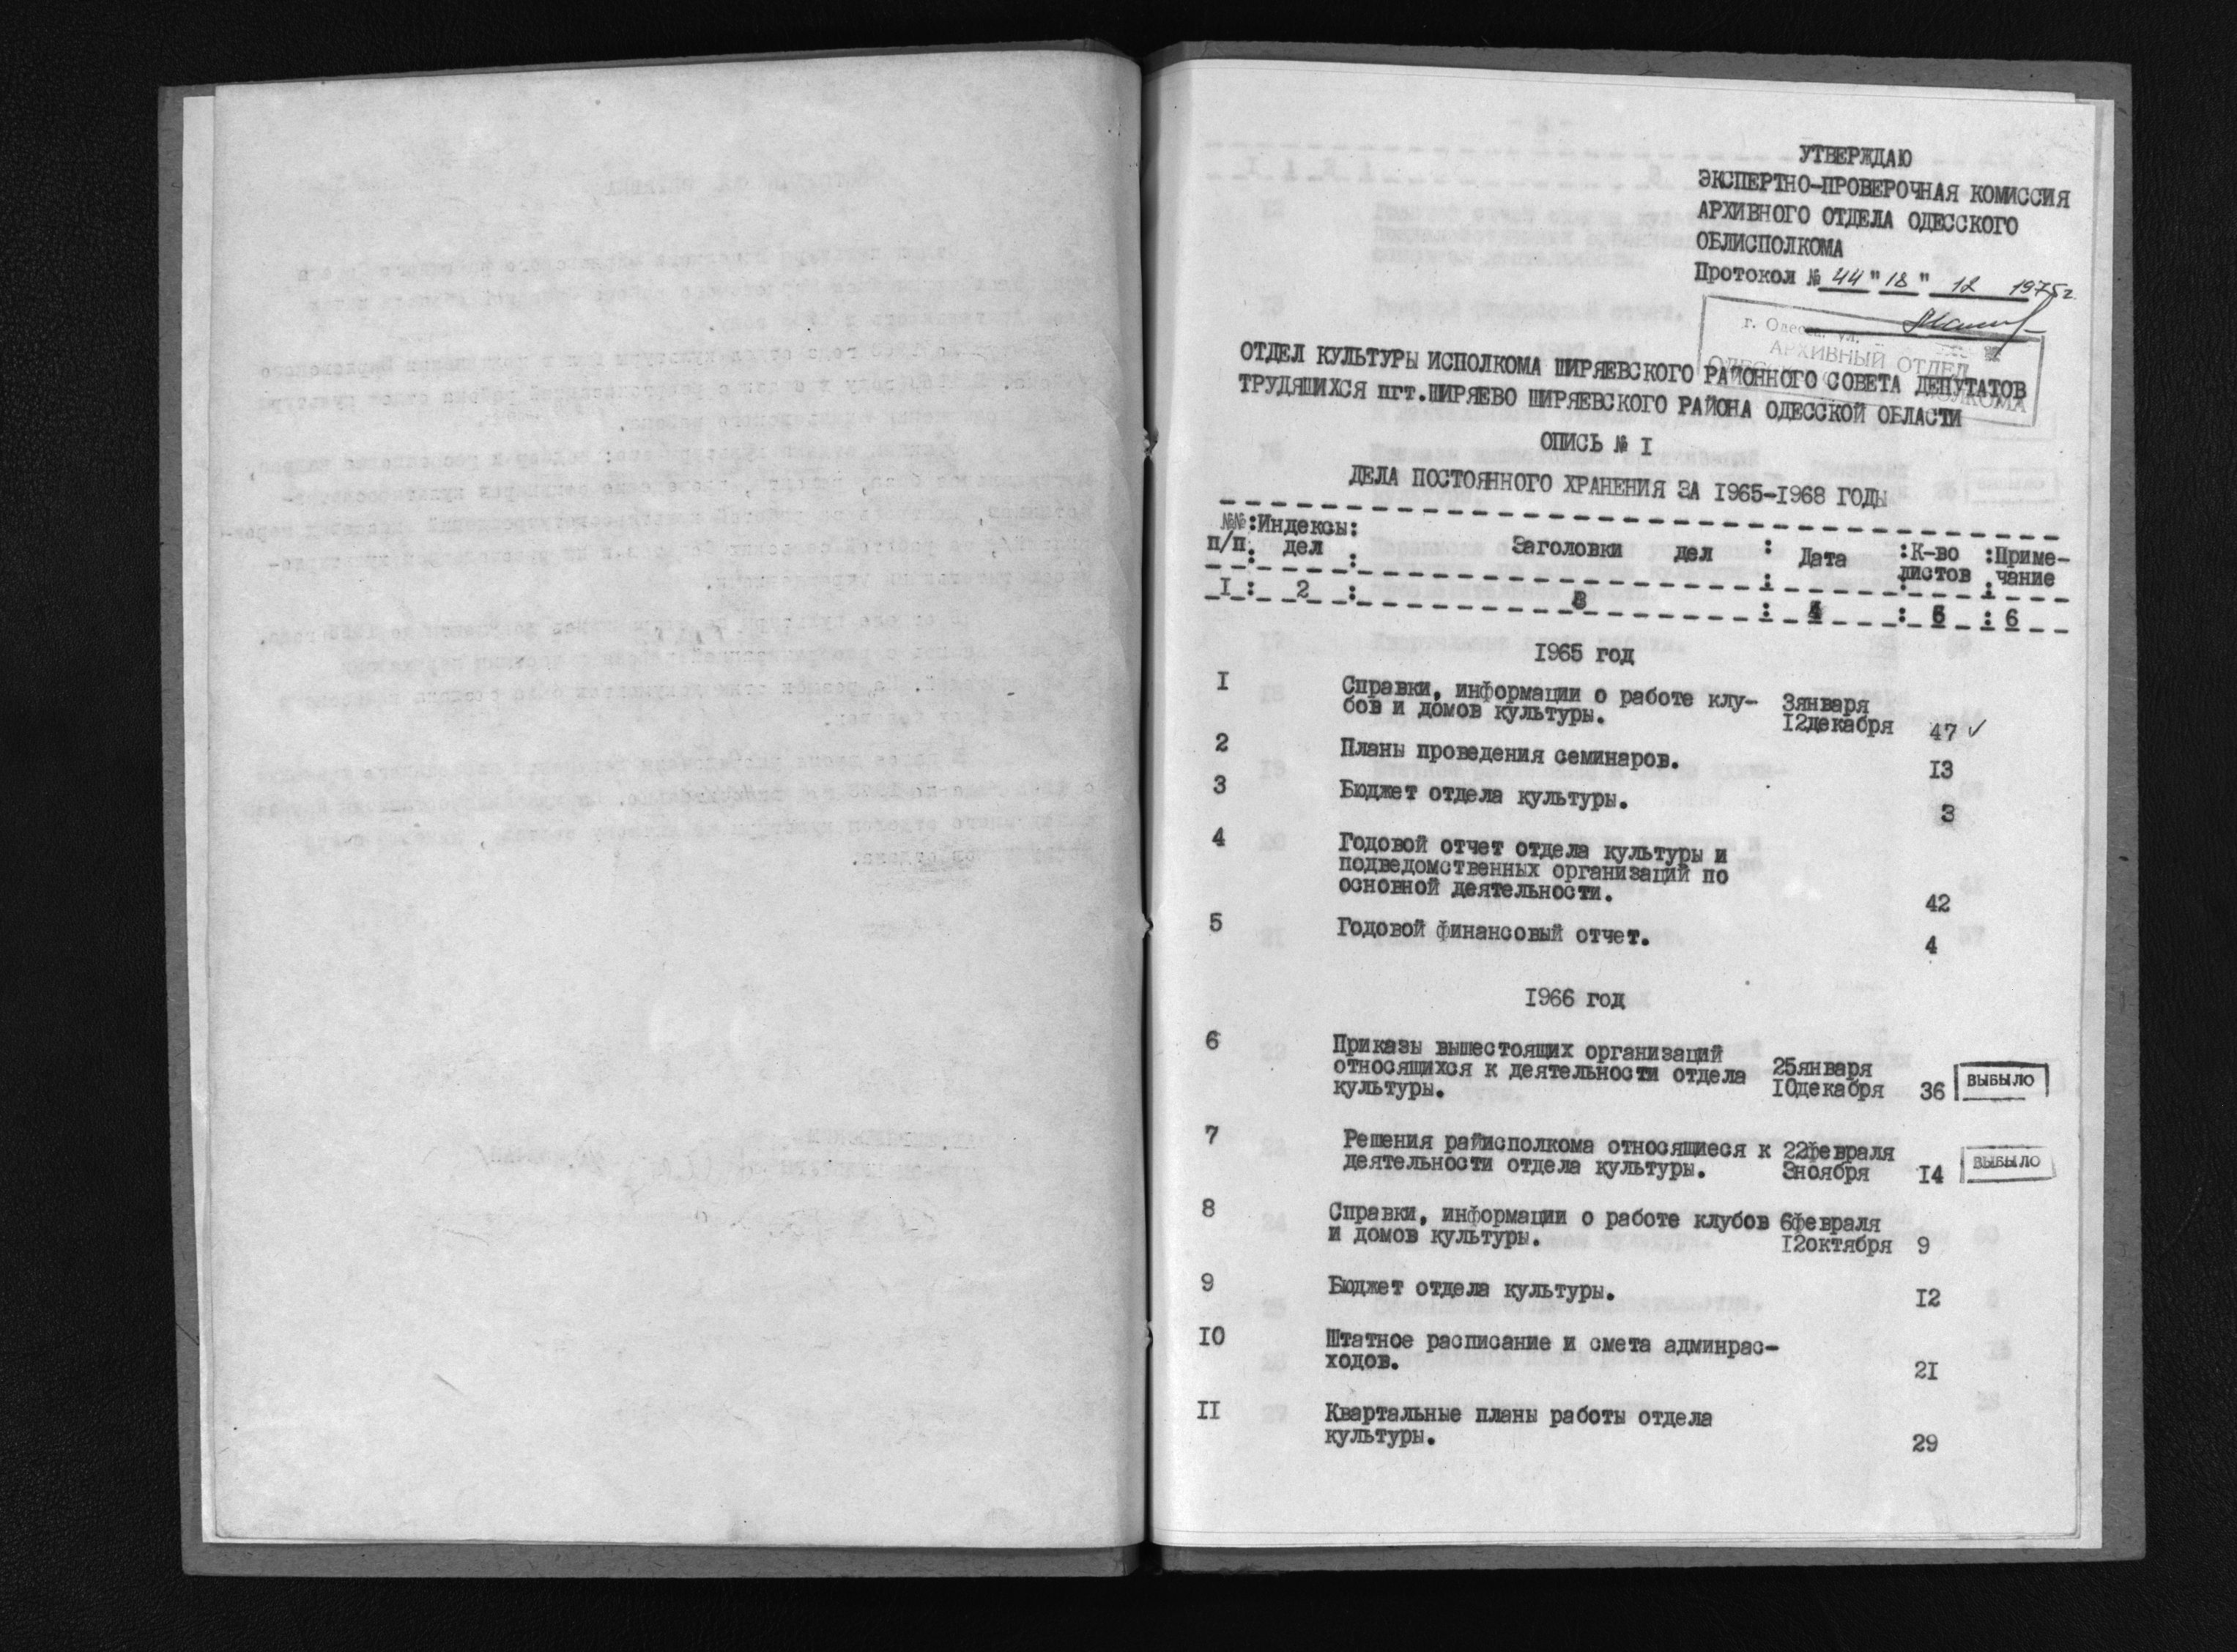 УТВЕРЖДАЮ
ЭКСПЕРТНО-ПРОВЕРОЧНАЯ КОМИССИЯ
АРХИВНОГО ОТДЕЛА ОДЕССКОГО
ОБЛИСПОЛКОМА
Протокол № 44 "18" 12 1975г
г. Одесса, ул.
АРХИВНЫЙ ОТДЕЛ
ОТДЕЛ КУЛЬТУРЫ ИСПОЛКОМА ШИРЯЕВСКОГО РАЙОННОГО СОВЕТА ДЕПУТАТОВ
ТРУДЯЩИХСЯ пгт.ШИРЯЕВО ШИРЯЕВСКОГО РАЙОНА ОДЕССКОЙ ОБЛАСТИ
ОПИСЬ № I
ДЕЛА ПОСТОЯННОГО ХРАНЕНИЯ ЗА 1965-1968 ГОДЫ
№№:Индексы: Заголовки дел : Дата :К-во :Приме-
п/п: дел : : листов : чание
I : 2 : 3 : 4 : 5 : 6
1965 год
I Справки, информации о работе клу- 3января
бов и домов культуры. 12декабря 47 ✓
2 Планы проведения семинаров. 13
3 Бюджет отдела культуры. 3
4 Годовой отчет отдела культуры и
подведомственных организаций по
основной деятельности. 42
5 Годовой финансовый отчет. 4
1966 год
6 Приказы вышестоящих организаций
относящихся к деятельности отдела 25января
культуры. 10декабря 36 ВЫБЫЛО
7 Решения райисполкома относящиеся к 22февраля
деятельности отдела культуры. 3ноября 14 ВЫБЫЛО
8 Справки, информации о работе клубов 6февраля
и домов культуры. 12октября 9
9 Бюджет отдела культуры. 12
10 Штатное расписание и смета админрас-
ходов. 21
II Квартальные планы работы отдела
культуры. 29